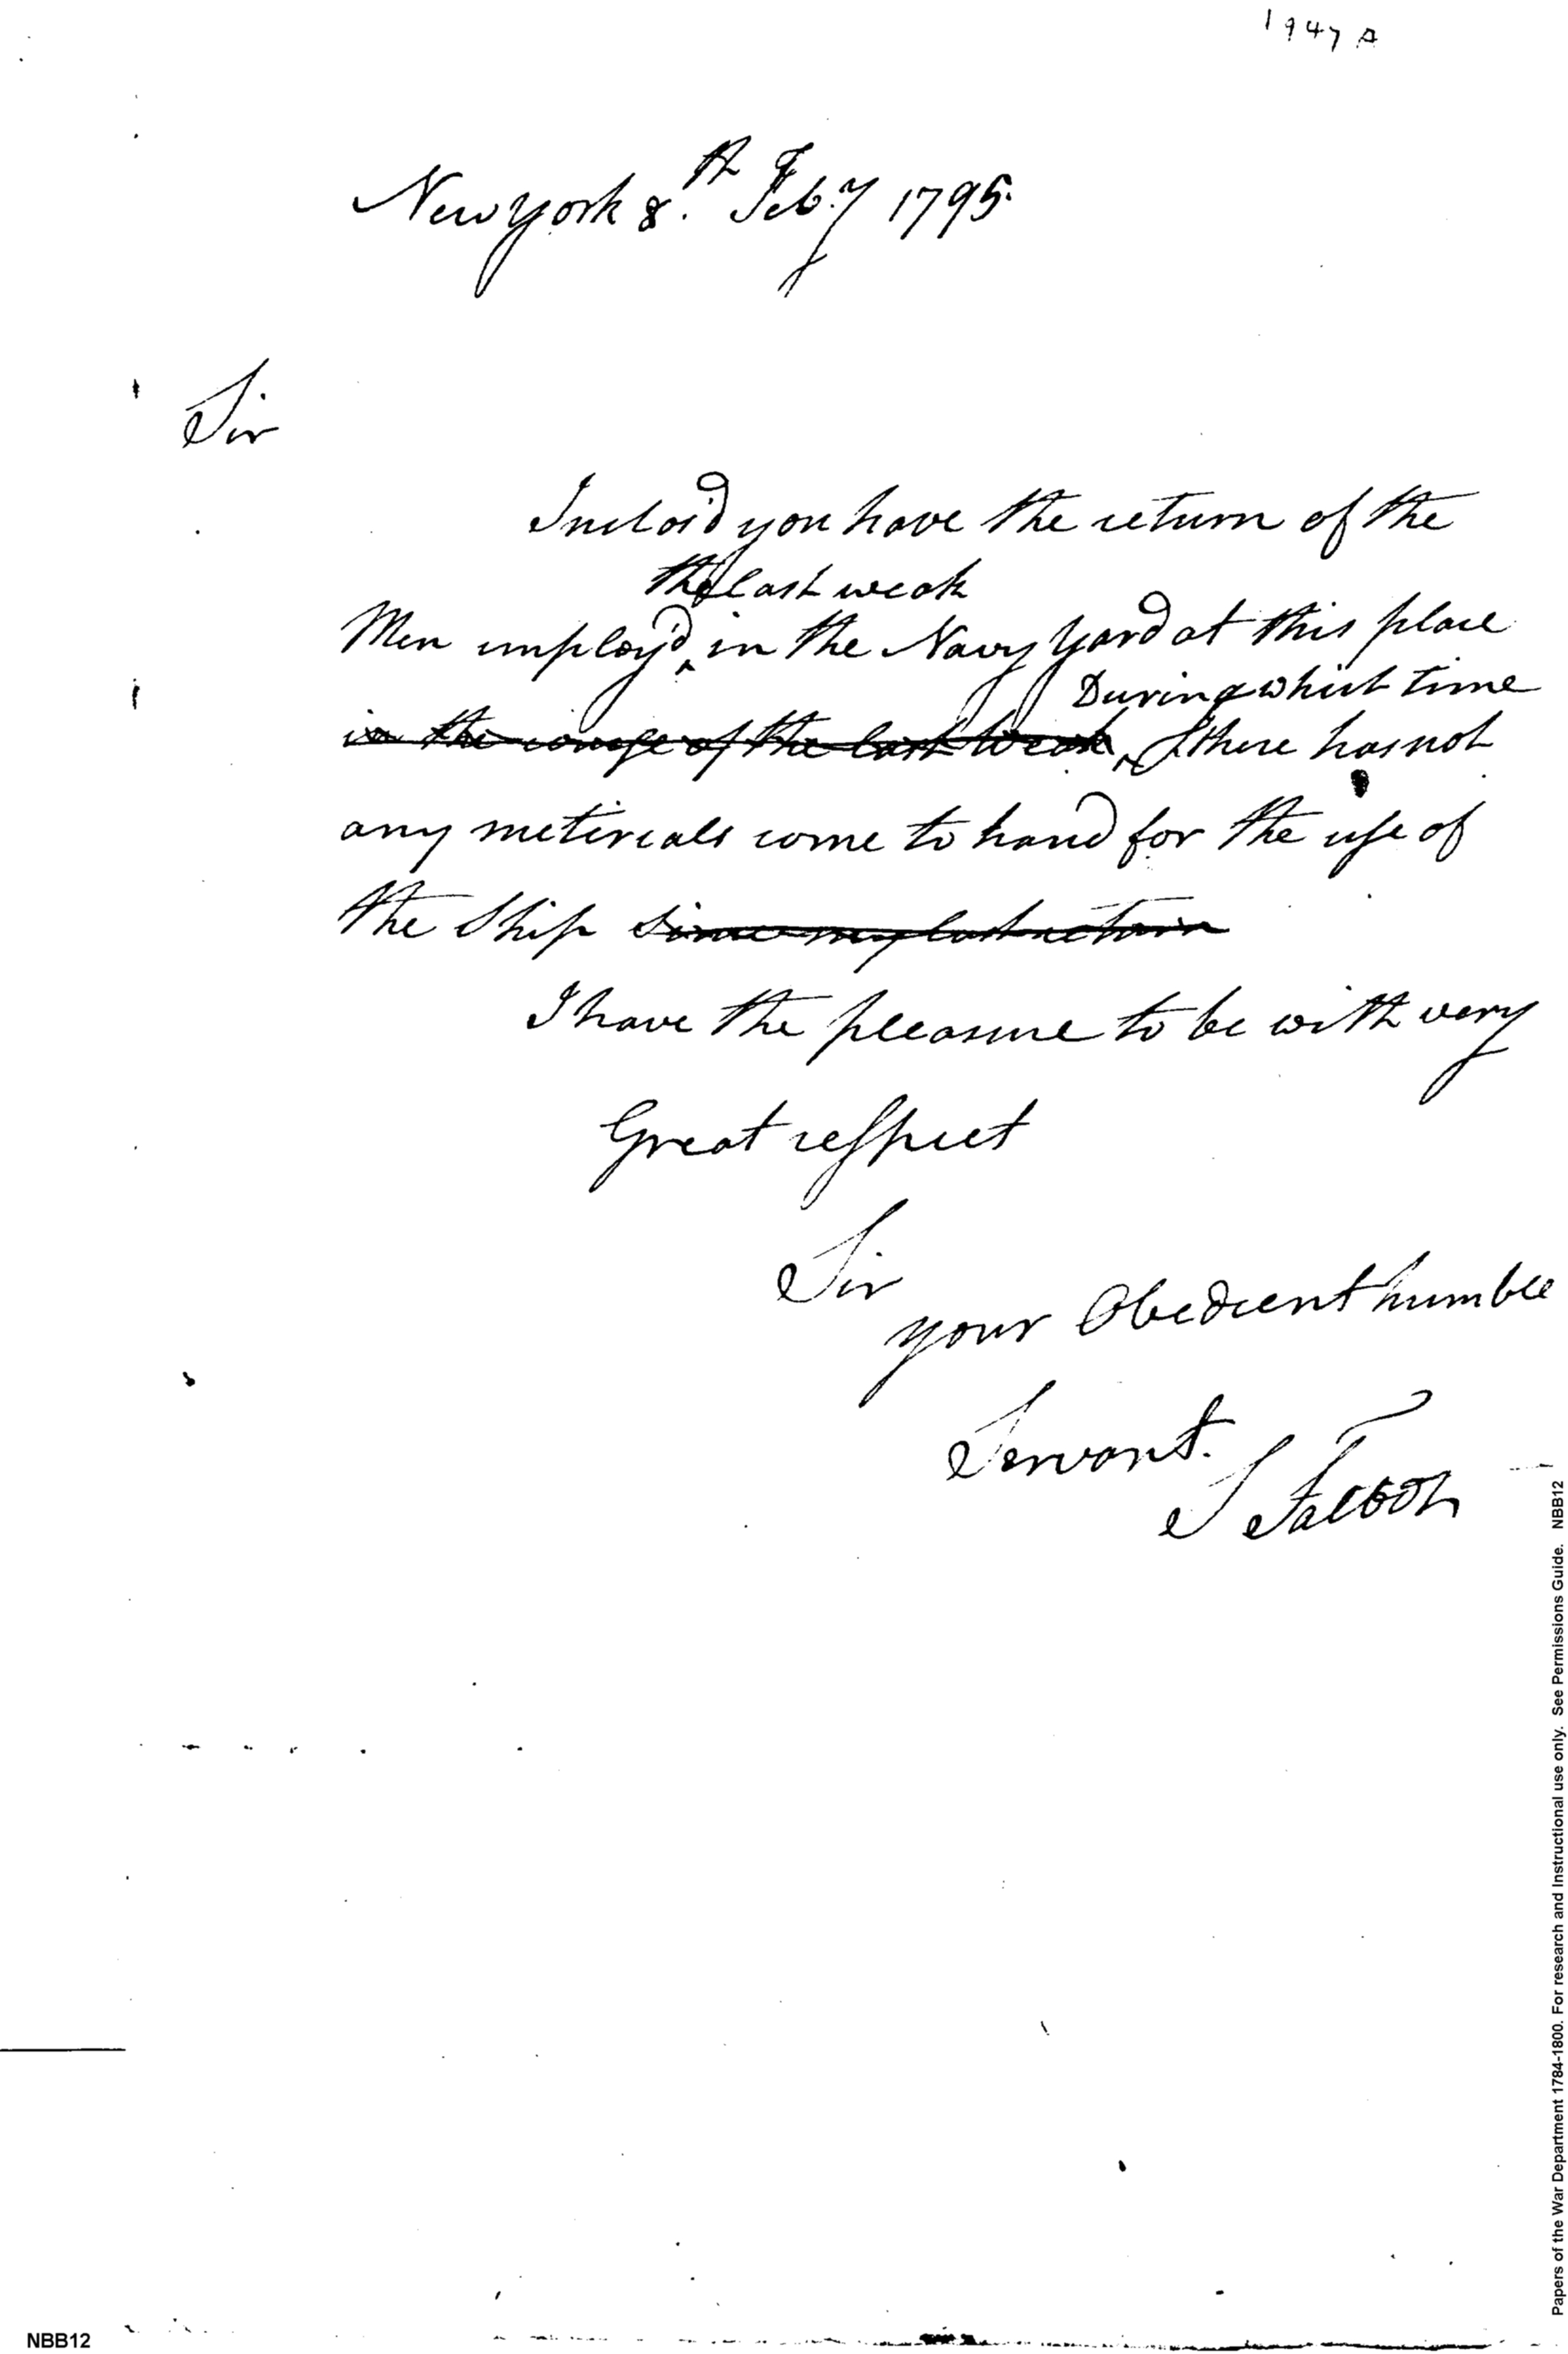 1947 A
New york 8.th Feby 1795.
Sir
Inclos'd you have the return of the
the last weak
Men imploy'd ^ in the Navy Yard at this place
During which time
in the course of the last weak ^ there has not
any meterials come to hand for the use of
the Ship since my last return
I have the pleasure to be with very
Great respect
Sir
your Obedient humble
Servant.
S Talbot
Papers of the War Department 1784-1800. For research and Instructional use only. See Permissions Guide. NBB12
NBB12